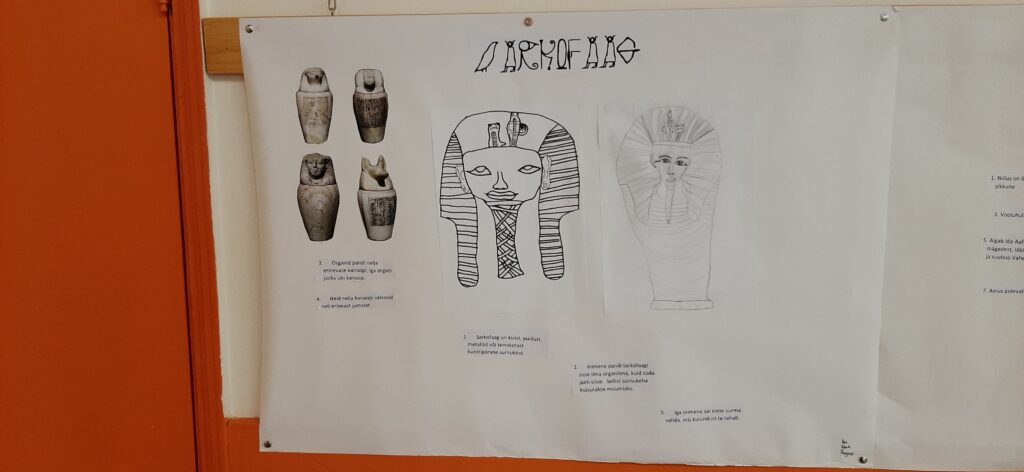 SARKOFAAG
1. Sarkofaag on kivist, puidust,
metallist või terrakotast
kunstipärane surnukirst.
2. Inimene pandi sarkofaagi
sisse ilma organiteta, kuid süda
jäeti sisse. Sellist surnukeha
kutsutakse muumiaks.
3. Organid pandi nelja
erinevasse kanoopi. Iga organi
jaoks üks kanoop.
4. Neid nelja kanoopi valvasid
neli erinevat jumalat.
5. Iga inimene sai enne surma
valida, mis kujundust ta tahab.
1. Niilus on
pikkune
3.
5. Algab Ida
mägedest,
ja suubub
7. Ainus